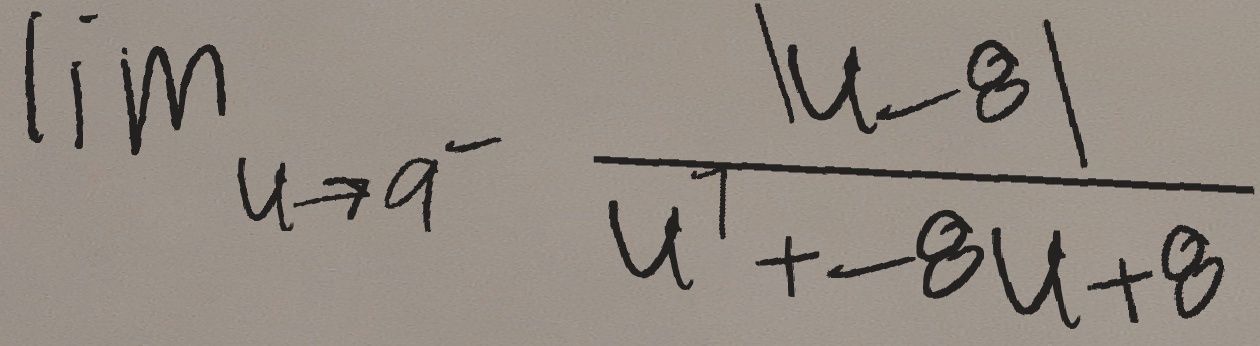 \lim_{u \to 9^-} \frac{|u-8|}{u^1+-8u+8}